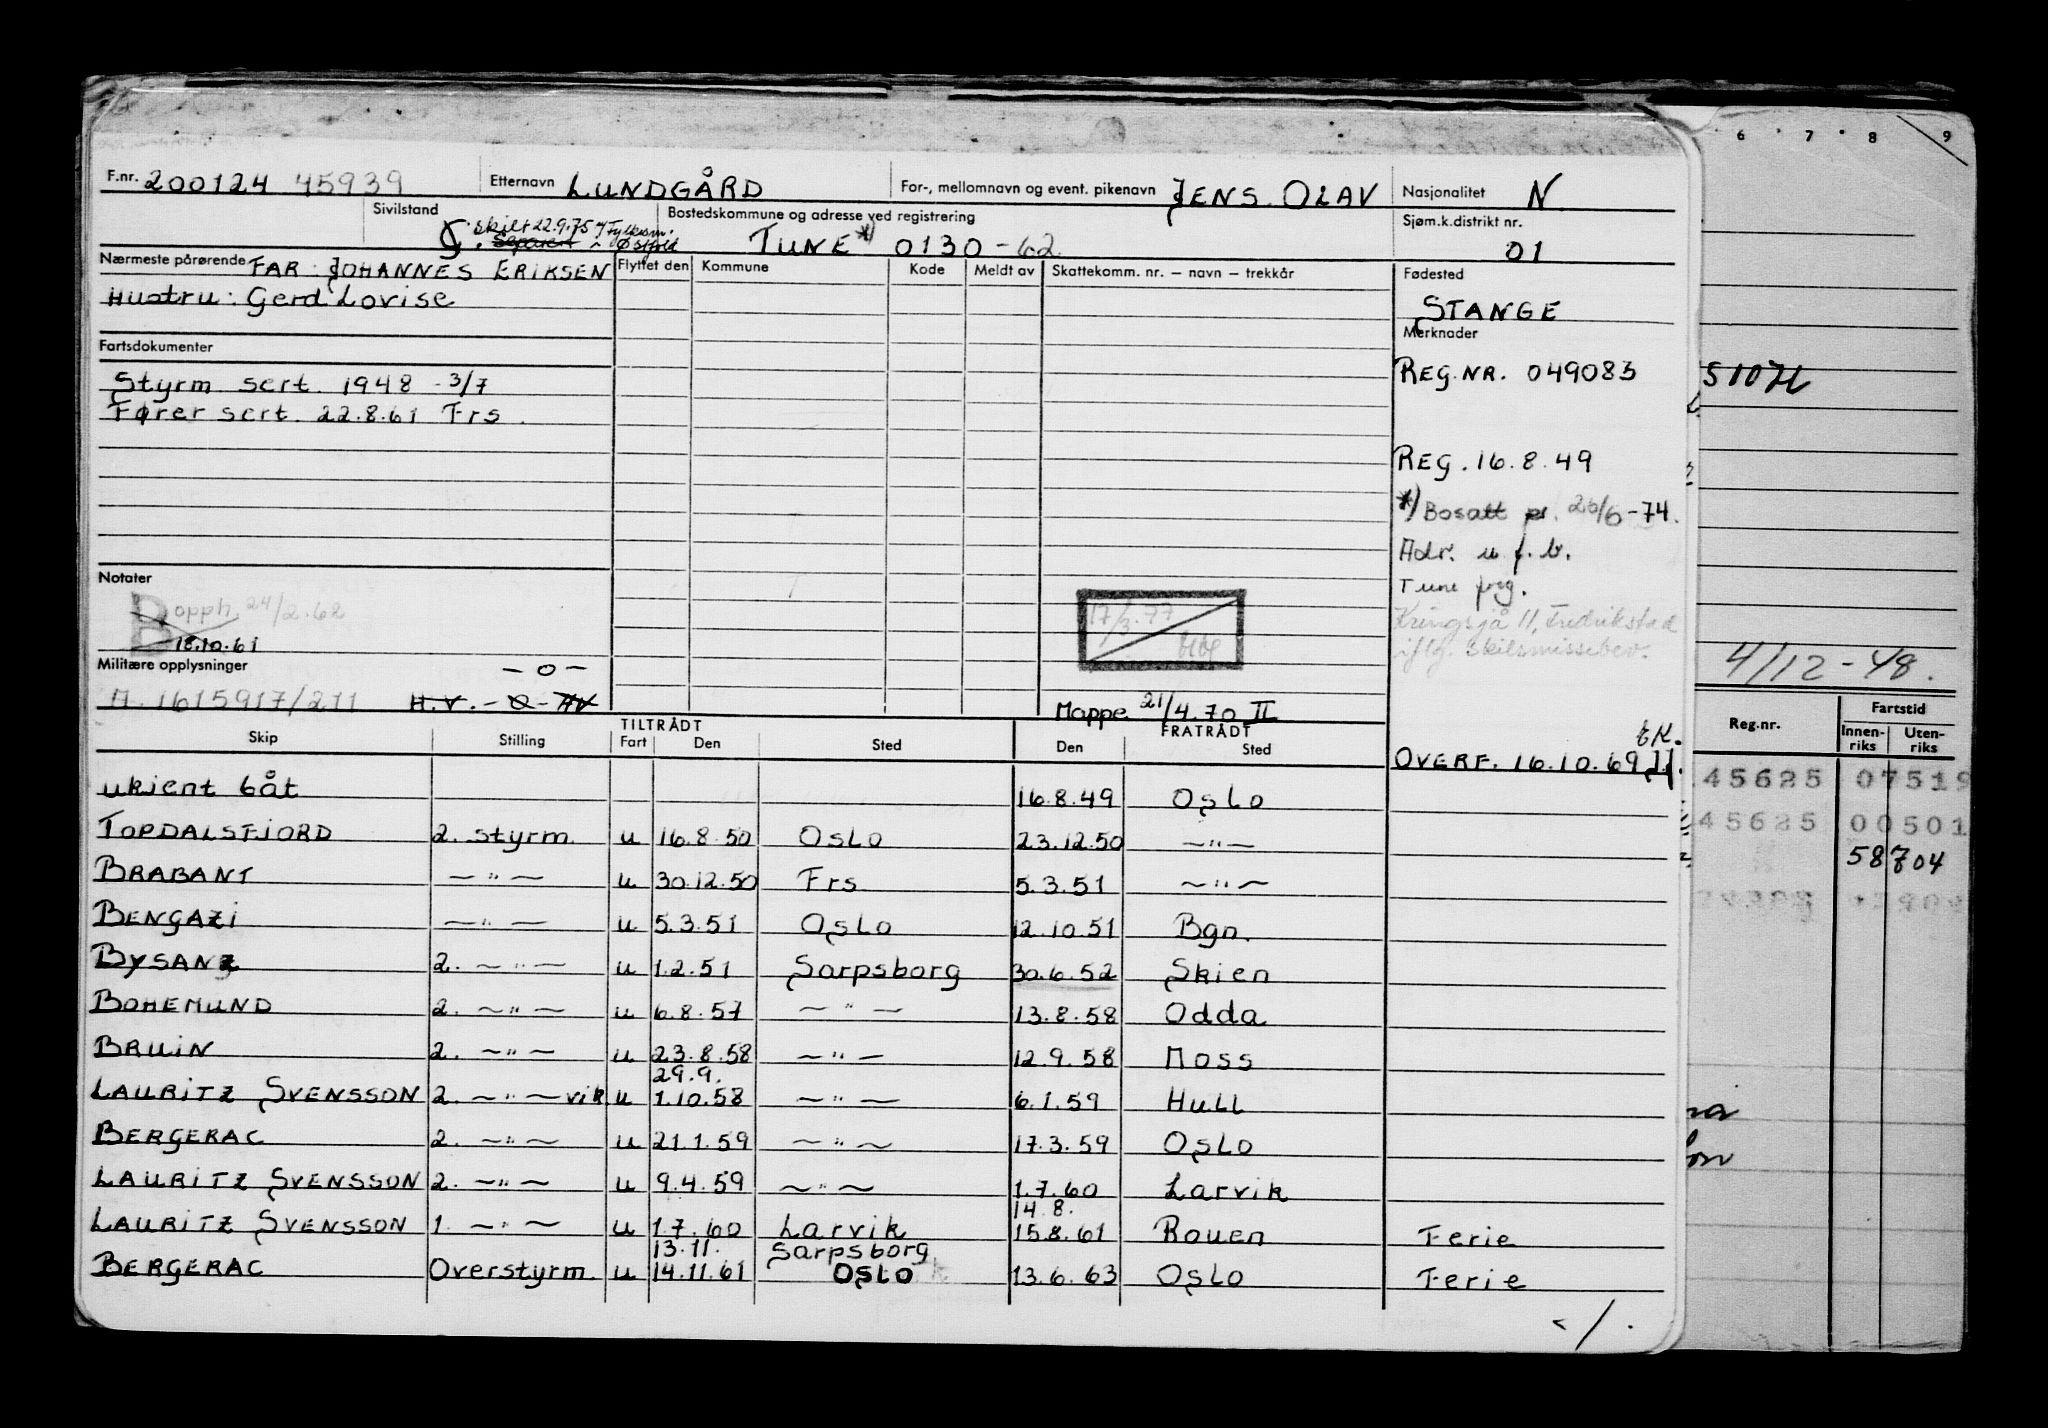 6 7 8 9
F.nr. 200124 45939 Etternavn LUNDGÅRD For-, mellomnavn og event. pikenavn JENS OLAV Nasjonalitet N
Sivilstand G. skilt 22.9.75 Fylkesm. Separert Østfold Bostedskommune og adresse ved registrering TUNE *) 0130 - 62 Sjøm.k.distrikt nr. 01
Nærmeste pårørende FAR: JOHANNES ERIKSEN Flyttet den Kommune Kode Meldt av Skattekomm. nr. – navn – trekkår Fødested
Hustru: Gerd Lovise STANGE
Merknader
Fartsdokumenter
REG.NR. 049083
Styrm sert. 1948 - 3/7
Fører sert. 22.8.61 Frs.
REG. 16.8.49
*) Bosatt pr. 26/6-74.
Adr. u f. b.
Notater Tune prg.
B opph. 24/2.62 17/3.77
Kringsjå 11, Fredrikstad
B 18.10.61
iflg. skilsmissebev.
Militære opplysninger - o -
4/12-48.
A. 1615917/211 H.V. - O - AV
Mappe 21/4.70 II
TILTRÅDT FRATRÅDT
Skip Stilling Fart Den Sted Den Sted
EK.
OVERF. 16.10.69
Reg.nr. Fartstid
Innenriks Utenriks
45625 07519
45625 00501
58704
ukjent båt 16.8.49 Oslo
TOPDALSFJORD 2. styrm. u 16.8.50 Oslo 23.12.50 —"—
BRABANT —"— u 30.12.50 Frs 5.3.51 —"—
BENGAZI —"— u 5.3.51 Oslo 12.10.51 Bgn.
BYSANZ 2. —"— u 1.2.51 Sarpsborg 30.6.52 Skien
BOHEMUND 2. —"— u 6.8.57 —"— 13.8.58 Odda
BRUIN 2. —"— u 23.8.58 —"— 12.9.58 Moss
29.9.
LAURITZ SVENSSON 2. —"— vik u 1.10.58 —"— 6.1.59 Hull
BERGERAC 2. —"— u 21.1.59 —"— 17.3.59 Oslo
LAURITZ SVENSSON 2. —"— u 9.4.59 —"— 1.7.60 Larvik
14.8.
LAURITZ SVENSSON 1. —"— u 1.7.60 Larvik 15.8.61 Rouen Ferie
13.11. Sarpsborg
BERGERAC Overstyrm. u 14.11.61 OSLO 13.6.63 Oslo Ferie